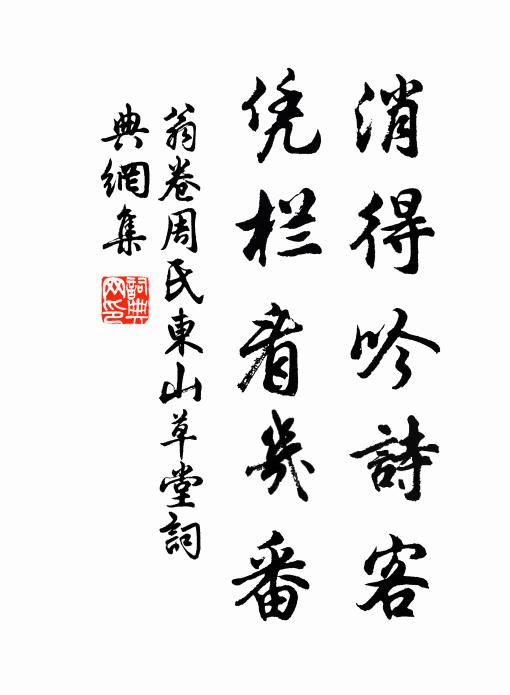 消得吟詩客
凭栏看几番
翁卷周氏東山草堂詞
典網集
詞典网印